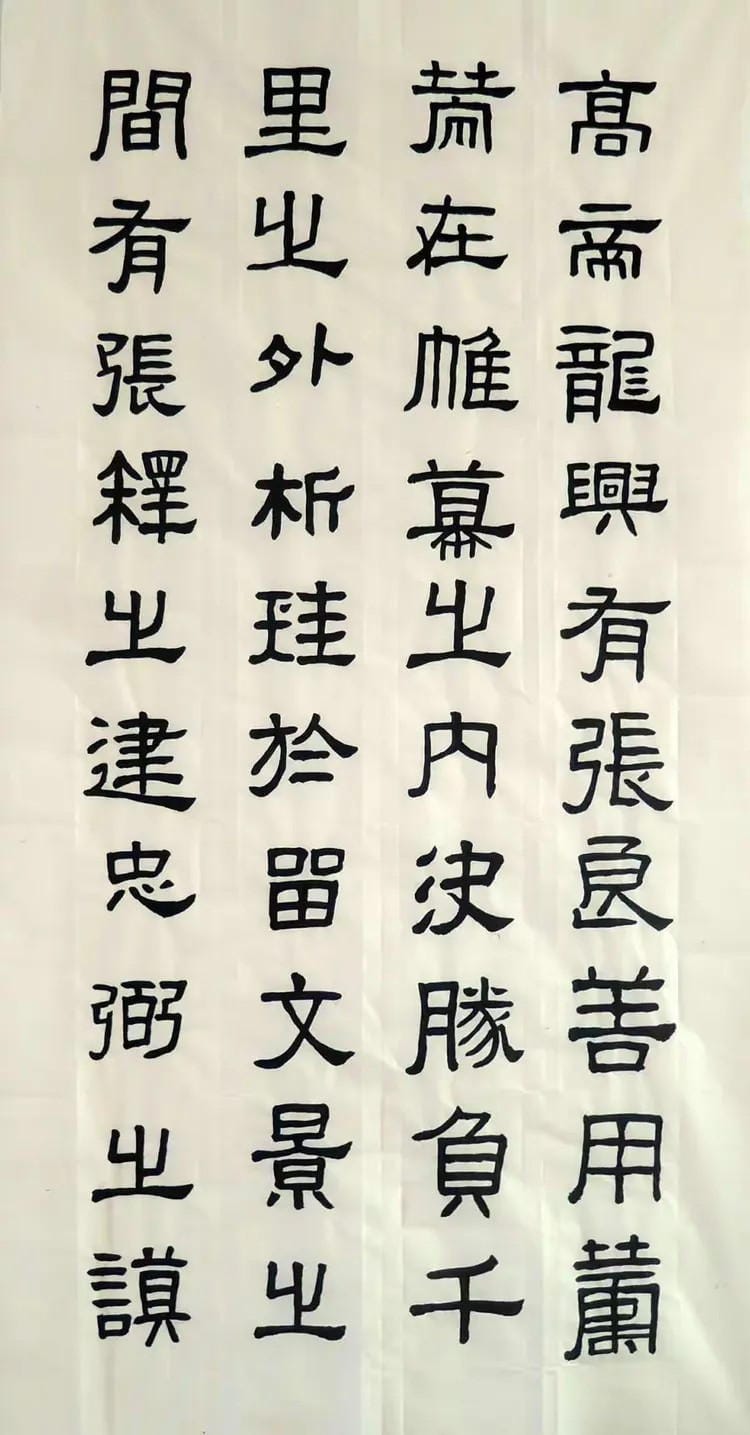 高帝龍興有張良善用籌
策在帷幕之內決勝負千
里之外析珪於留文景之
間有張釋之建忠弼之謨